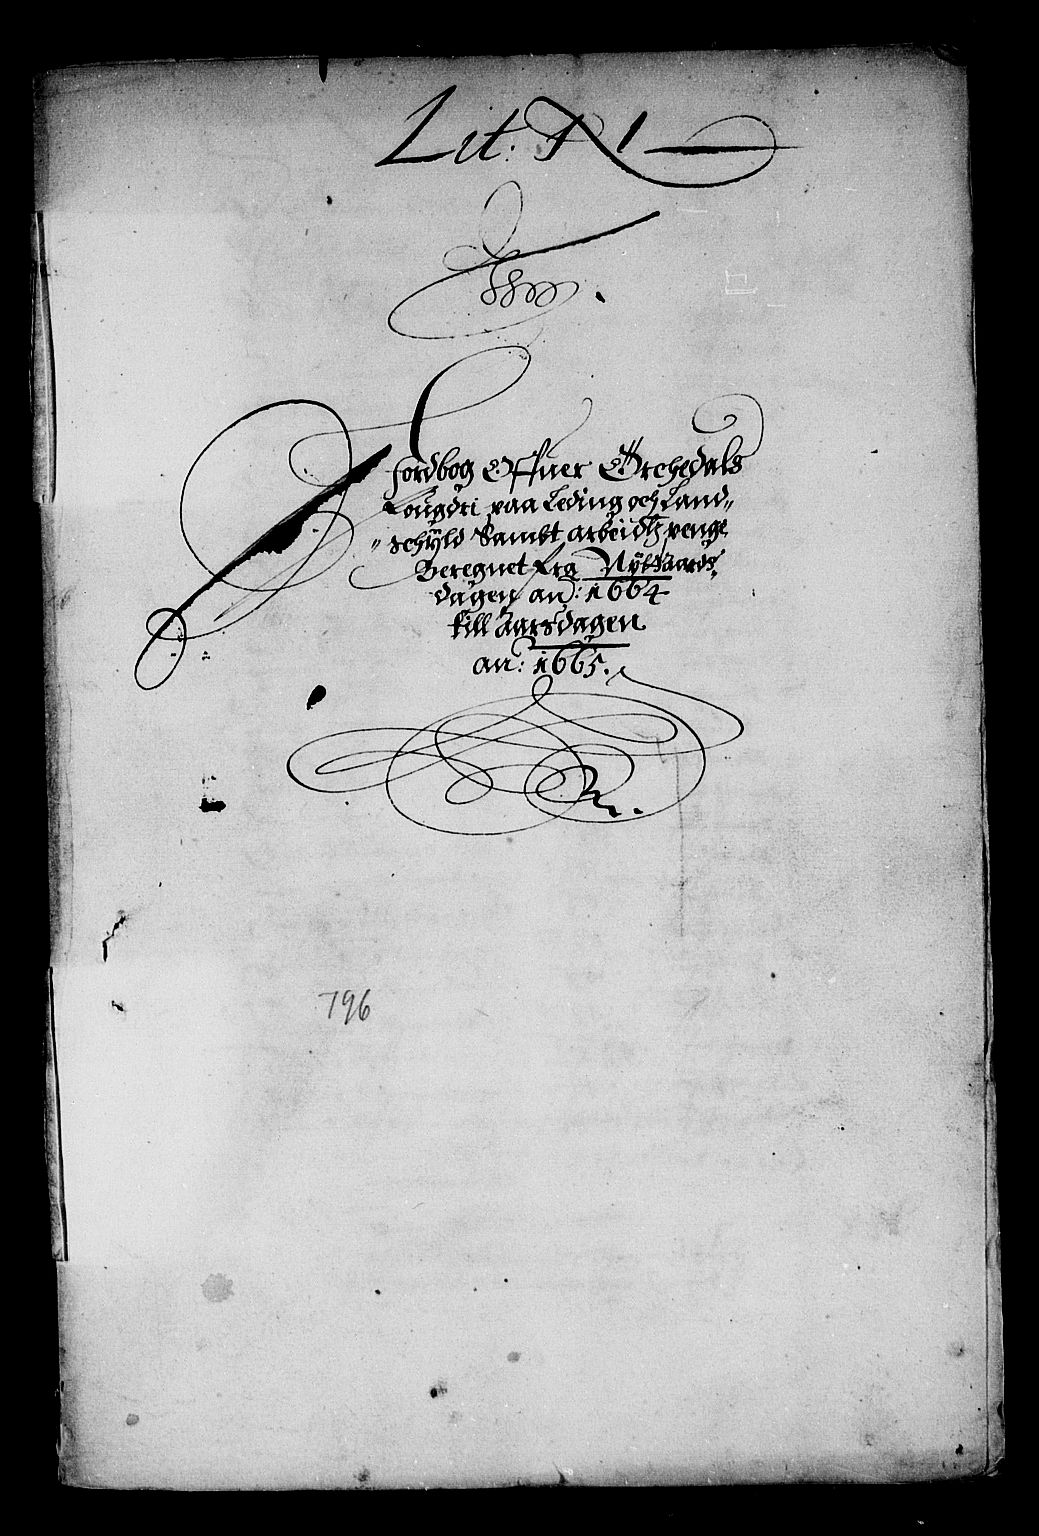 Lit: N 1
Jordbog Offuer Örchedals
Fougdri paa Leding och Land„
„schÿld Sambt arbeidtz penge
Beregnet fra Nÿtt Aars„
dagen an: 1664
till Aarsdagen
an: 1665.
796